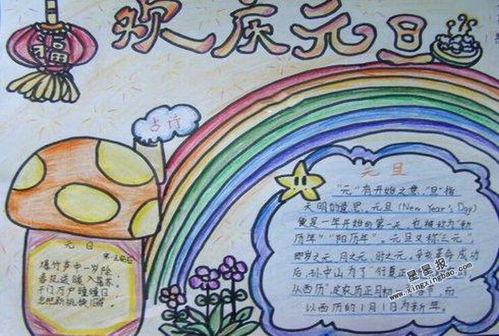 欢庆元旦
福
古诗
元日
爆竹声中一岁除
春风送暖入屠苏
千门万户曈曈日
总把新桃换旧符
元旦
"元"有开始之意,"旦"指
天明的意思。元旦(New Year's Day)
便是一年开始的第一天,也被称为"新
历年""阳历年"。元旦又称"三元",
即岁之元、月之元、时之元。辛亥革命成功
后,孙中山为了"行夏正
以西历",定农历正月初一
以西历的1月1日为新年。
星星报
xingxingbao.com